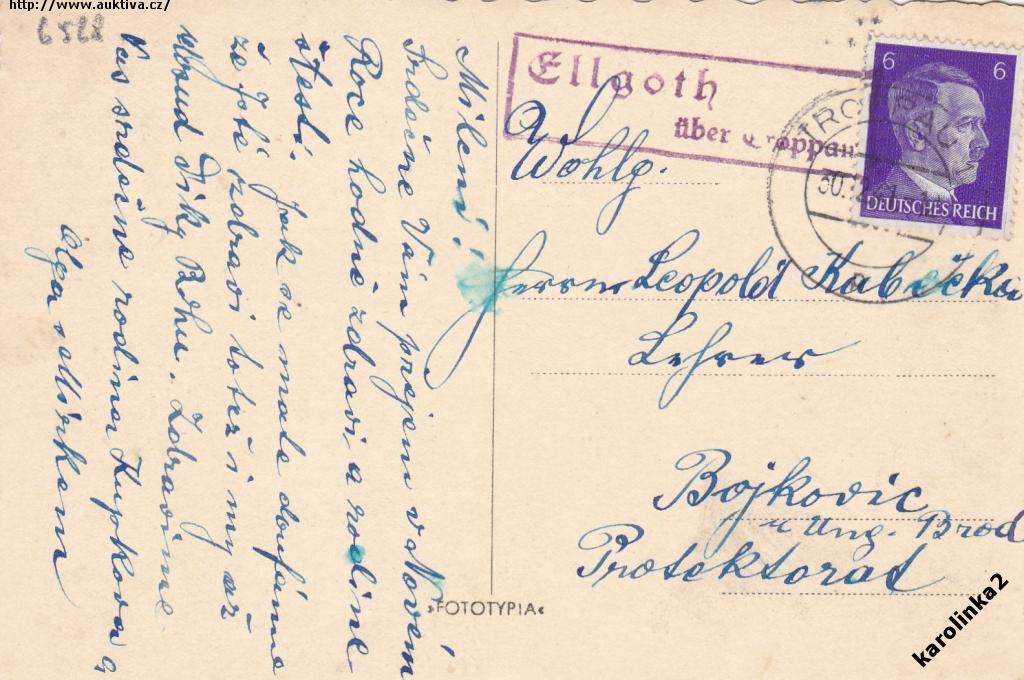 http://www.auktiva.cz/
6528
Milení!
Srdečne Vám prejem v Novém
Roce hodně zdraví a rodinné
štestí. Jak se mate doufáme
že jste zdravi totež i my až
posud Díky Bohu. Zdravíme
Vas srdečně rodina Kupkova a
Olga s Mirkem
Ellgoth
über Troppau
TROPPAU
30.12.41
6 6
DEUTSCHES REICH
Wohlg.
Herrn Leopold Kabička
Lehrer
Bojkovic
u Ung. Brod
Protektorat
»FOTOTYPIA«
karolinka2